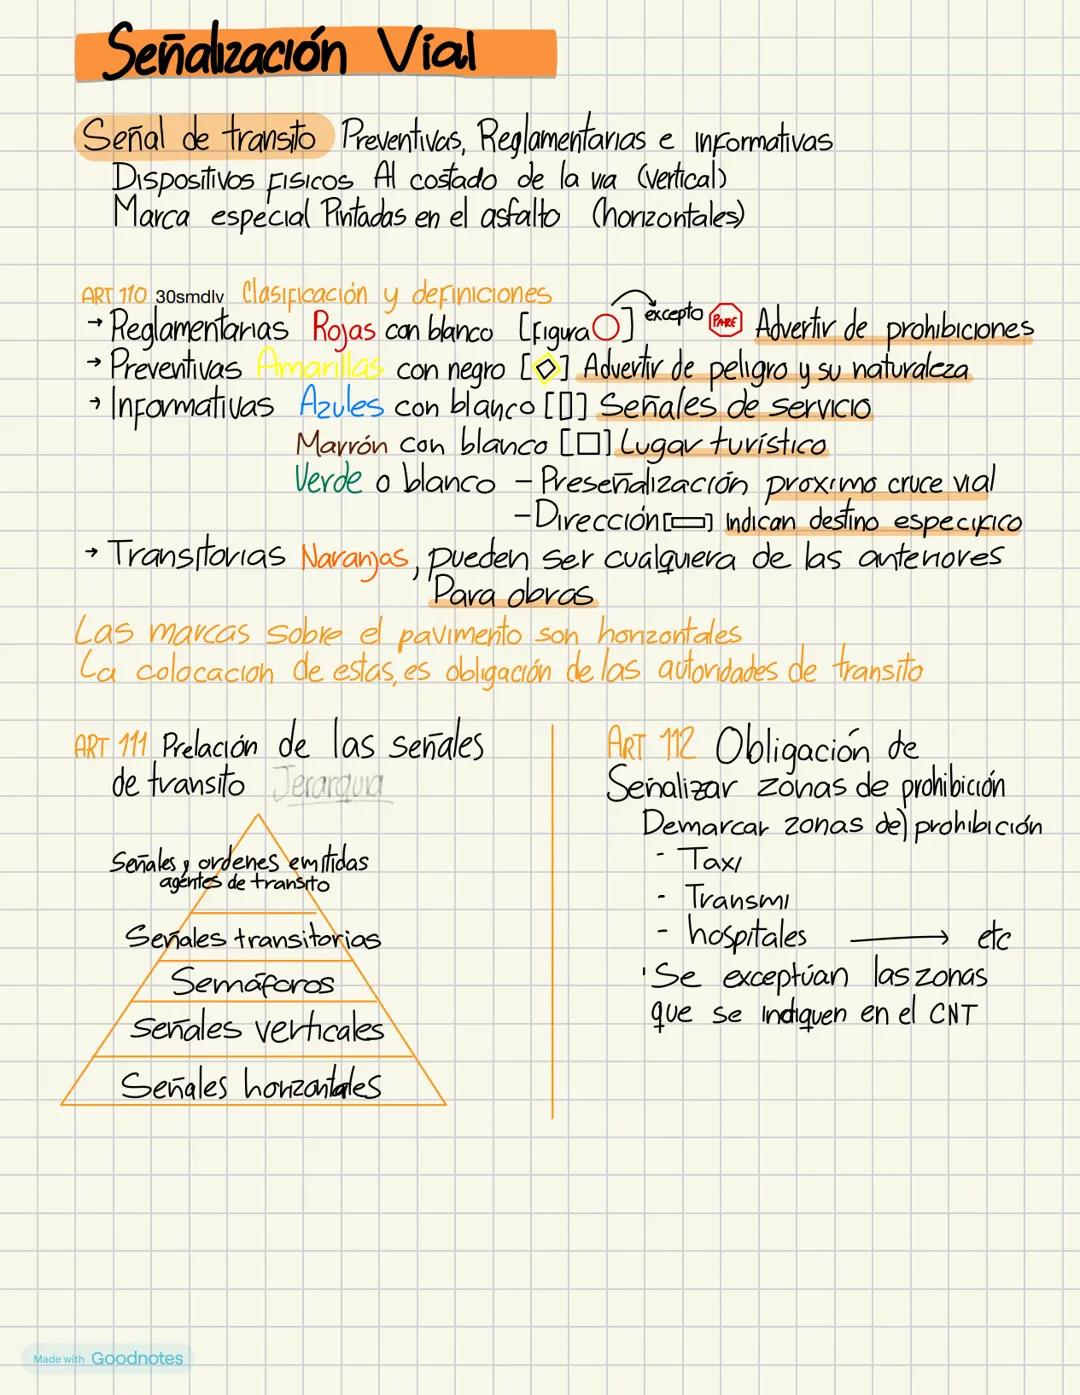 Señalización Vial
Señal de transito Preventivas, Reglamentarias e informativas
Dispositivos Fisicos Al costado de la via (vertical)
Marca especial Pintadas en el asfalto (horizontales)
ART 110 30smdlv Clasificación y definiciones
→ Reglamentarias Rojas con blanco [Figura ] excepto PARE Advertir de prohibiciones
→ Preventivas Amarillas con negro [ ] Advertir de peligro y su naturaleza
→ Informativas Azules con blanco [ ] Señales de servicio
Marrón con blanco [ ] Lugar turístico
Verde o blanco - Preseñalización proximo cruce vial
- Dirección [ ] Indican destino especifico
→ Transitorias Naranjas, pueden ser cualquiera de las anteriores
Para obras
Las marcas sobre el pavimento son horizontales
La colocacion de estas, es obligación de las autoridades de transito
ART 111 Prelación de las señales
de transito Jerarquia
Señales y ordenes emitidas
agentes de transito
Señales transitorias
Semáforos
Señales verticales
Señales horizontales
ART 112 Obligación de
Señalizar zonas de prohibición
Demarcar zonas de) prohibición
- Taxi
- Transmi
- hospitales → etc
'Se exceptúan las zonas
que se indiquen en el CNT
Made with Goodnotes